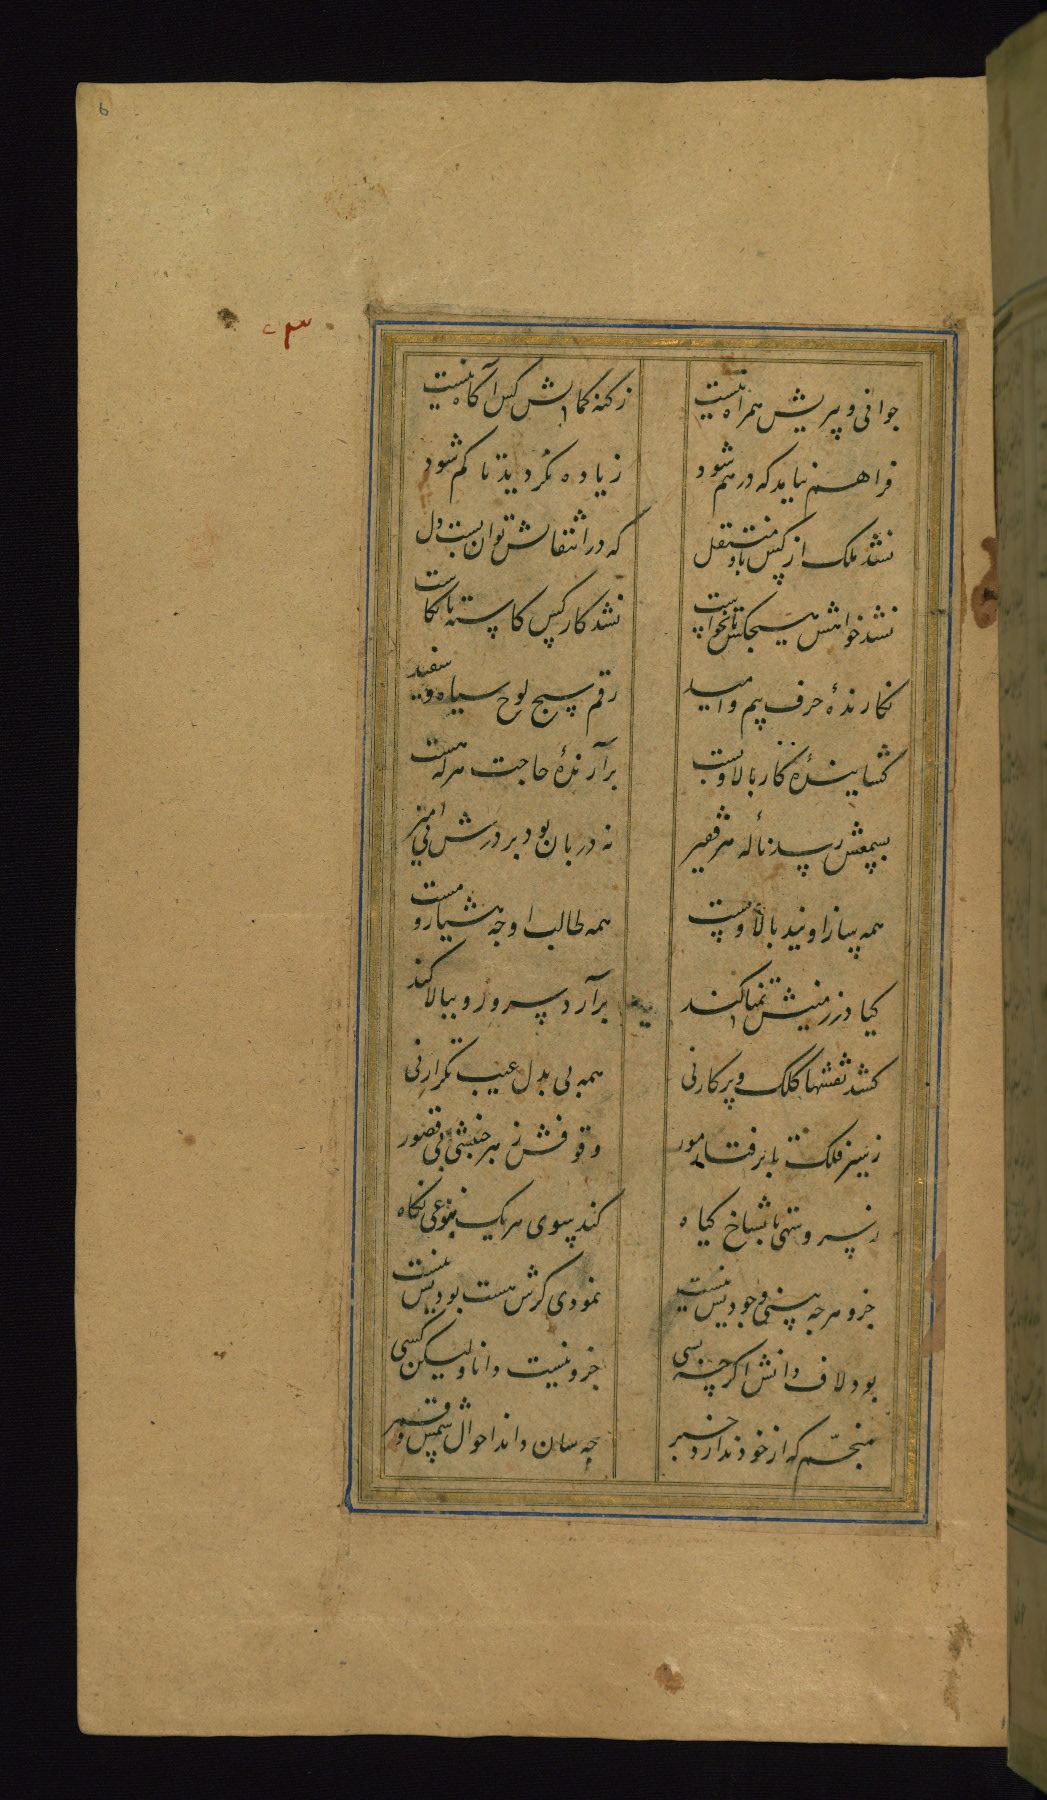 6
جوانی و پیریش همراه نیست
ز کنه کمالش کس آگاه نیست
فراهم نیامد که درهم شود
زیاده نکردید تا کم شود
نشد ملک از کس باو منتقل
که در انتقالش توان بست دل
نشد خواهش هیچکس تا نخواست
نشد کار کس کاسته تا نکاست
نکارندهٔ حرف بیم و امید
رقم سنج لوح سیاه و سفید
کشایندهٔ کار بالا و پست
برآرندهٔ حاجت هر که هست
بسمعش رسد نالهٔ هر فقیر
نه دربان بود بر درش نی امیر
همه ساز اویند بالا و پست
همه طالب او چه هشیار و مست
کیا در زمینش تمنا کند
برآرد سر و رو ببالا کند
کشد نقشها کلک و پرکار نی
همه بی بدل عیب تکرار نی
ز سیر فلک تا برفتار مور
وقوفش ز هر جنبشی بی قصور
ز سرو سهی تا بشاخ کیاه
کند سوی هر یک بنوعی نکاه
جزو هرچه بینی وجودیش نیست
نمودی کرش هست بودیش نیست
بود لاف دانش اکرچه بسی
جزو نیست دانا ولیکن کسی
منجم که از خود ندارد خبر
چه سان داند احوال شمس و قمر